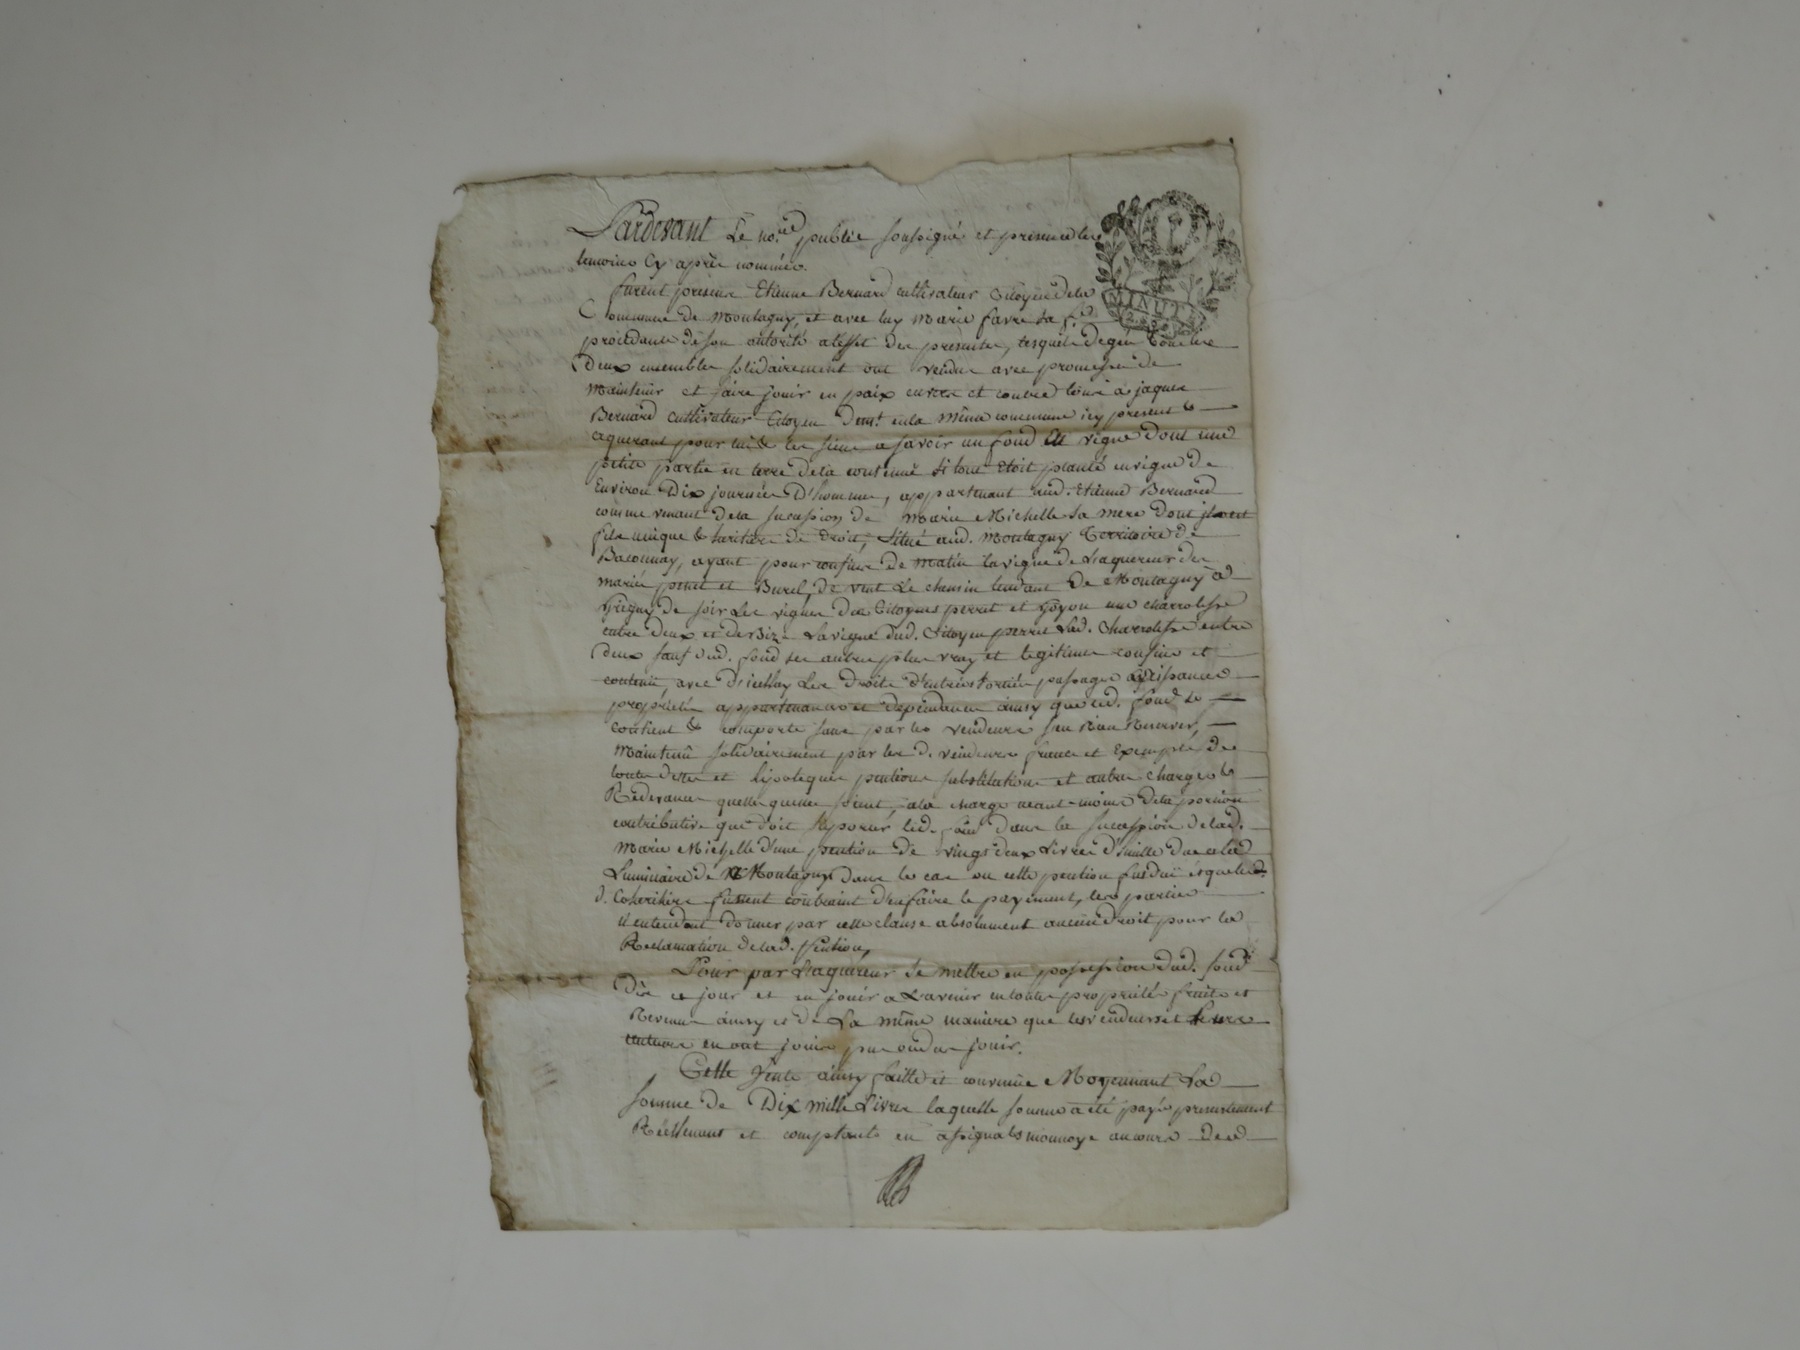 Pardevant Le no.re public soussigné et presence des
temoins Cy après nommés.
furent presens Etienne Bernard cultivateur Citoyen dela
Commune de Montagny, et avec luy Marie favre sa f.e
procedante de son autorité a leffet des presentes, lesquels degré
deux ensembles solidairement ont vendu avec promesse de
Maintenir et faire jouir en paix envers et contre tous à jaques
Bernard cultivateur Citoyen dem.t enla même commune icy present &
aquerant pour lui & les siens a savoir un fond en vigne dont une
petite partie en terre dela contenue si tout etoit planté en vigne de
Environ Dix journées d'hommes, appartenant aud. Etienne Bernard
comme venant dela sucession de Marie Michelle sa mere dont il est
fils unique & heritier de droit, situé aud. Montagny Territoire de
Baconnay, ayant pour confins de matin la vigne de Laquereur des
mariés pinet et Burel, de vent Le chemin tendant De Montagny à
Grigny de soir Les vignes des Citoyens perret et Goyon une charrolesse
entre deux et de Bize La vigne dud. Citoyen perret Lad. Charrolesse entre
deux sauf dud. fond ses autres plus vray et legitimes confins et
contenue, avec d'icelluy Les droits d'entrées sorties passages aisances
proprietés appartenances et dependances ainsy que led. fond se
contient & comporte sans par les vendeurs s'en Rien Reserver,
Maintenu solidairement par les d. vendeurs franc et Exempt de
toutes dettes et hipoteques pentions substitutions et autres charges &
Redevances quelles quelles soient ala charge neant-moins dela portion
contributive que doit suporter led. fond dans la sucession delad.
Marie Michelle d'une pention de vingt deux Livres d'huille due alad
Luminaire de Montagny dans le cas ou cette pention fus due et que les
d. Coheritiers fussent contraint d'en faire le payement, les parties
n'entendant donner par cette clause absolument aucun droit pour la
Reclamation delad. Pention,
Pour par Laquereur se mettre en possession dud. fond
Dès ce jour et en jouir a L'avenir en toutes proprietés fruits et
Revenus ainsy et de La même maniere que les vendeurs et leurs
auteurs en ont jouis pus ou dus jouir.
Cette Vente ainsy faitte et convenue Moyennant La
somme de Dix mille Livres laquelle somme a été payée presentement
Réellement et comptant en assignats monnoye au cours de ed